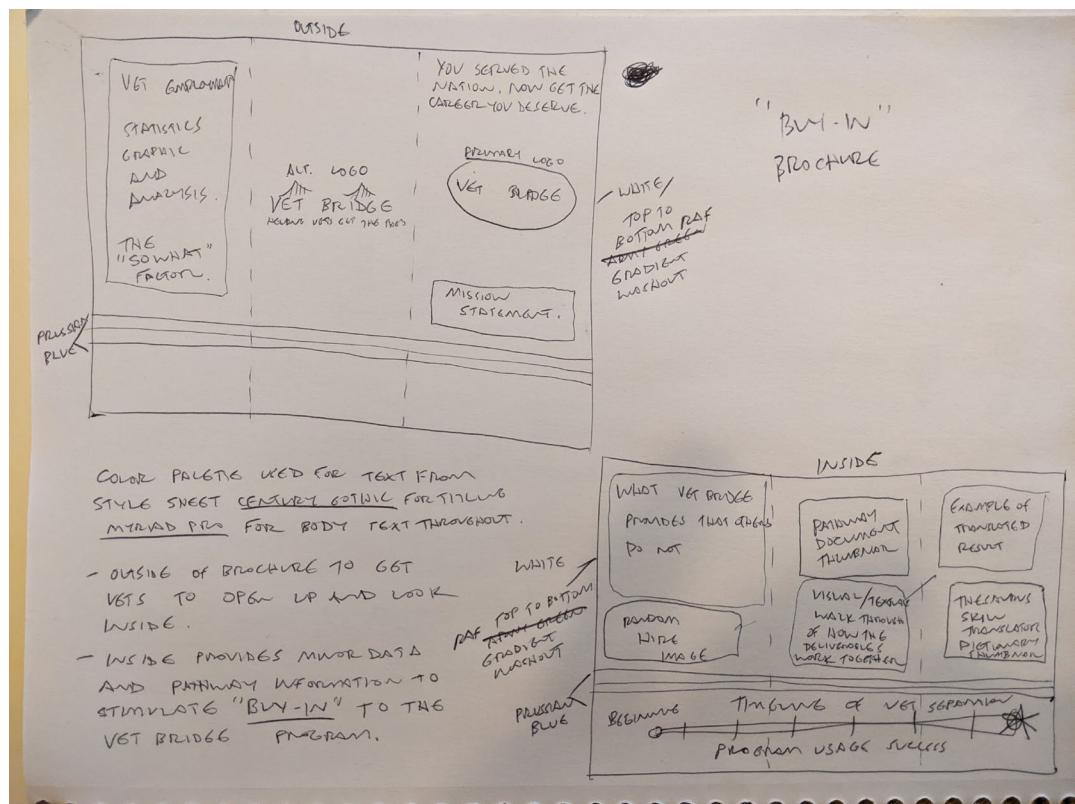 OUTSIDE
VET EMPLOYMENT
STATISTICS
GRAPHIC
AND
ANALYSIS.
THE
"SO WHAT"
FACTOR.
ALT. LOGO
VET BRIDGE
HELPING VETS GET THE JOBS
YOU SERVED THE
NATION. NOW GET THE
CAREER YOU DESERVE.
PRIMARY LOGO
VET BRIDGE
MISSION
STATEMENT.
PRUSSIAN
BLUE
WHITE/
TOP TO
BOTTOM RAF
ARMY GREEN
GRADIENT
WASHOUT
"BUY-IN"
BROCHURE
COLOR PALETTE USED FOR TEXT FROM
STYLE SHEET CENTURY GOTHIC FOR TITLING
MYRIAD PRO FOR BODY TEXT THROUGHOUT.
- OUTSIDE OF BROCHURE TO GET
VETS TO OPEN UP AND LOOK
INSIDE.
- INSIDE PROVIDES MINOR DATA
AND PATHWAY INFORMATION TO
STIMULATE "BUY-IN" TO THE
VET BRIDGE PROGRAM.
INSIDE
WHAT VET BRIDGE
PROVIDES THAT OTHERS
DO NOT
RANDOM
HIRE
IMAGE
PATHWAY
DOCUMENT
THUMBNAIL
VISUAL/TEXTUAL
WALK THROUGH
OF HOW THE
DELIVERABLES
WORK TOGETHER
EXAMPLE OF
TRANSLATED
RESULT
THESAURUS
SKILL
TRANSLATOR
DICTIONARY
THUMBNAIL
WHITE
TOP TO BOTTOM
RAF ARMY GREEN
GRADIENT
WASHOUT
PRUSSIAN
BLUE
BEGINNING TIMELINE OF VET SEPARATION
PROGRAM USAGE SUCCESS